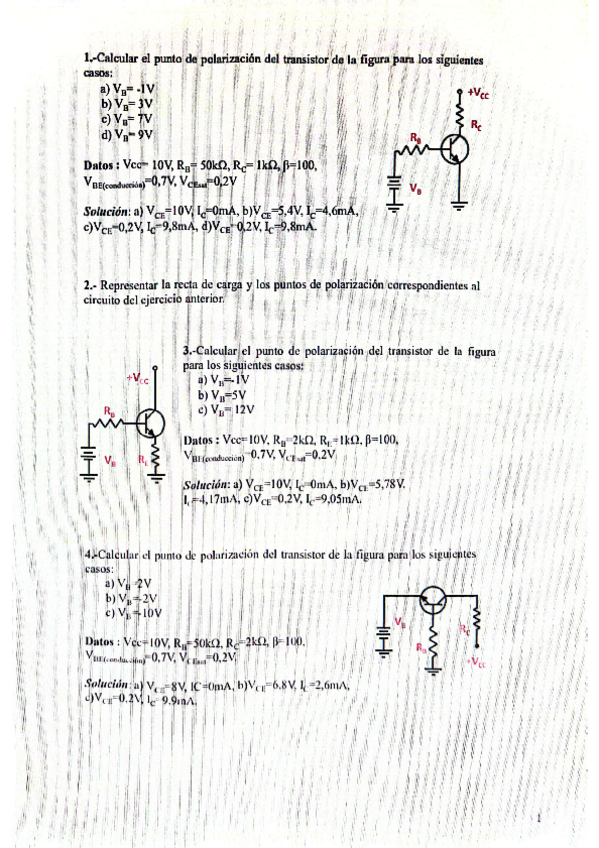 1.-Calcular el punto de polarización del transistor de la figura para los siguientes
casos:
a) VB= -1V
b) VB= 3V
c) VB= 7V
d) VB= 9V
+VCC
RC
RB
VB
Datos : Vcc= 10V, RB= 50kΩ, RC= 1kΩ, β=100,
VBE(conducción)=0,7V, VCEsat=0,2V
Solución: a) VCE=10V, IC=0mA, b)VCE=5,4V, IC=4,6mA,
c)VCE=0,2V, IC=9,8mA, d)VCE=0,2V, IC=9,8mA.
2.- Representar la recta de carga y los puntos de polarización correspondientes al
circuito del ejercicio anterior.
3.-Calcular el punto de polarización del transistor de la figura
para los siguientes casos:
a) VB=-1V
b) VB=5V
c) VB= 12V
+VCC
RB
VB
Datos : Vcc=10V, RB=2kΩ, =1kΩ, β=100,
VBE(conducción)=0,7V, VCEsat=0,2V
Solución: a) VCE=10V, IC=0mA, b)VCE=5,78V,
=4,17mA, c)VCE=0,2V, IC=9,05mA.
4.-Calcular el punto de polarización del transistor de la figura para los siguientes
casos:
a) VB 2V
b) VB=-2V
c) VB=-10V
VB
RC
RB
Datos : Vcc=10V, RB=50kΩ, RC=2kΩ, β=100,
VBE(conducción)=0,7V, VCEsat=0,2V
Solución: a) VCE=8V, IC=0mA, b)VCE=6.8V, IC=2,6mA,
c)VCE=0.2V, IC= 9.9mA.
1